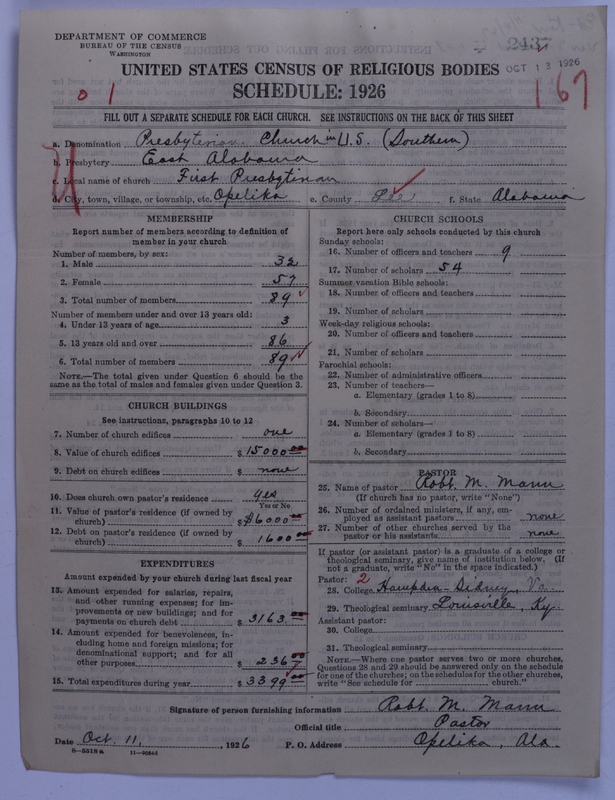 DEPARTMENT OF COMMERCE
BUREAU OF THE CENSUS
WASHINGTON
2437
OCT 13 1926
UNITED STATES CENSUS OF RELIGIOUS BODIES
SCHEDULE: 1926
0 1
167
FILL OUT A SEPARATE SCHEDULE FOR EACH CHURCH. SEE INSTRUCTIONS ON THE BACK OF THIS SHEET
a. Denomination Presbyterian Church in U.S. (Southern)
b. Presbytery East Alabama
c. Local name of church First Presbyterian
d. City, town, village, or township, etc. Opelika e. County Lee f. State Alabama
MEMBERSHIP
Report number of members according to definition of
member in your church
Number of members, by sex:
1. Male 32
2. Female 57
3. Total number of members 89
Number of members under and over 13 years old:
4. Under 13 years of age 3
5. 13 years old and over 86
6. Total number of members 89
NOTE.—The total given under Question 6 should be the
same as the total of males and females given under Question 3.
CHURCH BUILDINGS
See instructions, paragraphs 10 to 12
7. Number of church edifices one
8. Value of church edifices $ 15000.00
9. Debt on church edifices $ none
10. Does church own pastor's residence yes
Yes or No
11. Value of pastor's residence (if owned by
church) $ $6000.00
12. Debt on pastor's residence (if owned by
church) $ 1600.00
EXPENDITURES
Amount expended by your church during last fiscal year
13. Amount expended for salaries, repairs,
and other running expenses; for im-
provements or new buildings; and for
payments on church debt $ 3163.00
14. Amount expended for benevolences, in-
cluding home and foreign missions; for
denominational support; and for all
other purposes $ 236.00
15. Total expenditures during year $ 3399.00
CHURCH SCHOOLS
Report here only schools conducted by this church
Sunday schools:
16. Number of officers and teachers 9
17. Number of scholars 54
Summer vacation Bible schools:
18. Number of officers and teachers
19. Number of scholars
Week-day religious schools:
20. Number of officers and teachers
21. Number of scholars
Parochial schools:
22. Number of administrative officers
23. Number of teachers—
a. Elementary (grades 1 to 8)
b. Secondary
24. Number of scholars—
a. Elementary (grades 1 to 8)
b. Secondary
PASTOR
25. Name of pastor Robt. M. Mann
(If church has no pastor, write "None")
26. Number of ordained ministers, if any, em-
ployed as assistant pastors none
27. Number of other churches served by the
pastor or his assistants none
If pastor (or assistant pastor) is a graduate of a college or
theological seminary, give name of institution below. (If
not a graduate, write "No" in the space indicated.)
Pastor: 2
28. College Hampden-Sidney, Va.
29. Theological seminary Louisville, Ky.
Assistant pastor:
30. College
31. Theological seminary
NOTE.—Where one pastor serves two or more churches,
Questions 28 and 29 should be answered only on the schedule
for one of the churches; on the schedules for the other churches,
write "See schedule for church."
Signature of person furnishing information Robt. M. Mann
Official title Pastor
Date Oct. 11, 1926 P. O. Address Opelika, Ala.
8—5318a